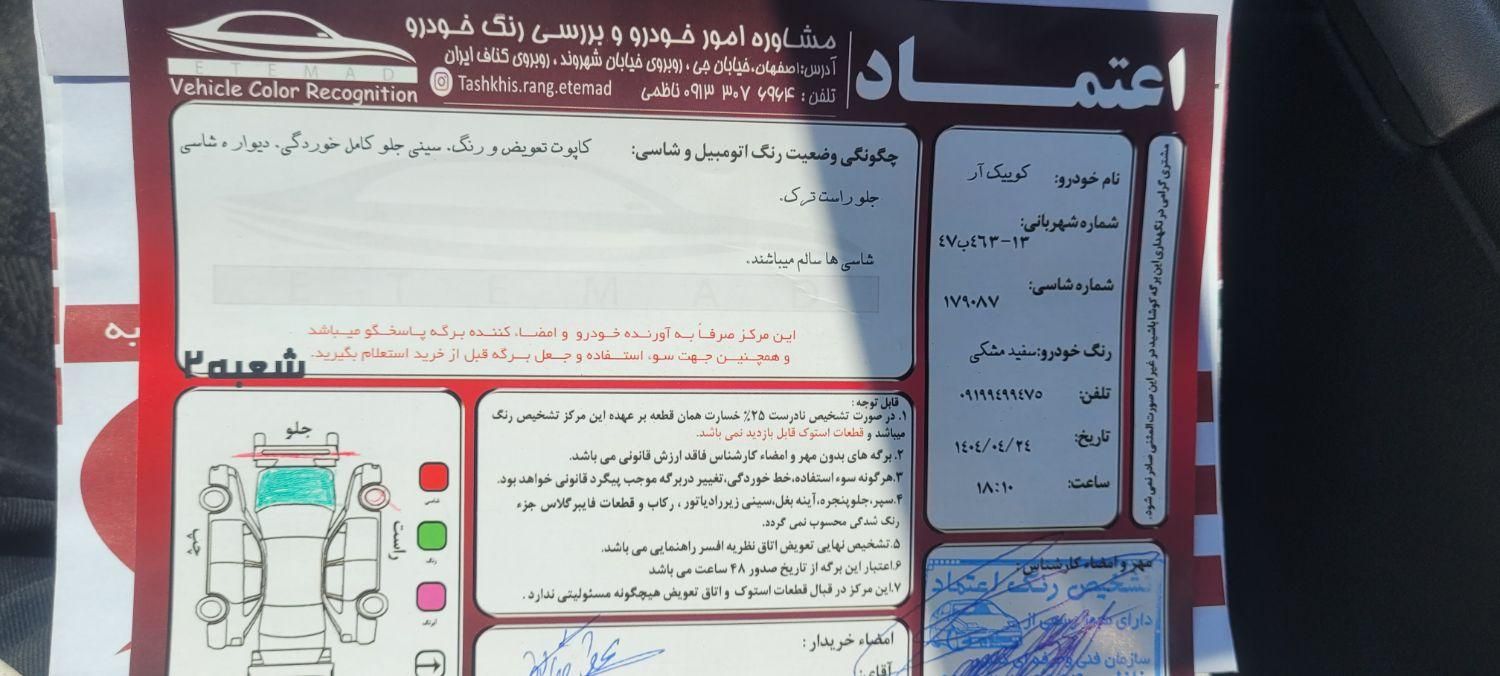 اعتمـــاد
مشاوره امور خودرو و بررسی رنگ خودرو
آدرس:اصفهان،خیابان جی ، روبروی خیابان شهروند ، روبروی کناف ایران
تلفن : ۰۹۱۳ ۳۰۷ ۶۹۶۴ ناظمی
Tashkhis.rang.etemad
ETEMAD
Vehicle Color Recognition
مشتری گرامی در نگهداری این برگه کوشا باشید در غیر این صورت المثنی صادر نمی شود.
نام خودرو: کوییک آر
شماره شهربانی:
۱۳-۴۶۳ب۴۷
شماره شاسی:
۱۷۹۰۸۷
رنگ خودرو:سفید مشکی
تلفن: ۰۹۱۹۹۴۹۹۴۷۵
تاریخ: ۱۴۰۴/۰۴/۲۴
ساعت: ۱۸:۱۰
چگونگی وضعیت رنگ اتومبیل و شاسی: کاپوت تعویض و رنگ. سینی جلو کامل خوردگی. دیواره شاسی
جلو راست ترک.
شاسی ها سالم میباشند.
ETEMAD
این مرکز صرفاً به آورنده خودرو و امضاء کننده برگه پاسخگو میباشد
و همچنین جهت سوء استفاده و جعل برگه قبل از خرید استعلام بگیرید.
شعبه۲
قابل توجه :
۱. در صورت تشخیص نادرست ۲۵٪ خسارت همان قطعه بر عهده این مرکز تشخیص رنگ
میباشد و قطعات استوک قابل بازدید نمی باشد.
۲. برگه های بدون مهر و امضاء کارشناس فاقد ارزش قانونی می باشد.
۳.هرگونه سوء استفاده،خط خوردگی،تغییر دربرگه موجب پیگرد قانونی خواهد بود.
۴.سپر،جلوپنجره،آینه بغل،سینی زیررادیاتور ، رکاب و قطعات فایبرگلاس جزء
رنگ شدگی محسوب نمی گردد.
۵.تشخیص نهایی تعویض اتاق نظریه افسر راهنمایی می باشد.
۶.اعتبار این برگه از تاریخ صدور ۴۸ ساعت می باشد
۷.این مرکز در قبال قطعات استوک و اتاق تعویض هیچگونه مسئولیتی ندارد .
جلو
راست
چپ
شاسی
رنگ
آبرنگ
مهر و امضاء کارشناس :
تشخیص رنگ اعتماد
دارای
از
سازمان فنی و حرفه ای کشور
امضاء خریدار :
آقای:
به